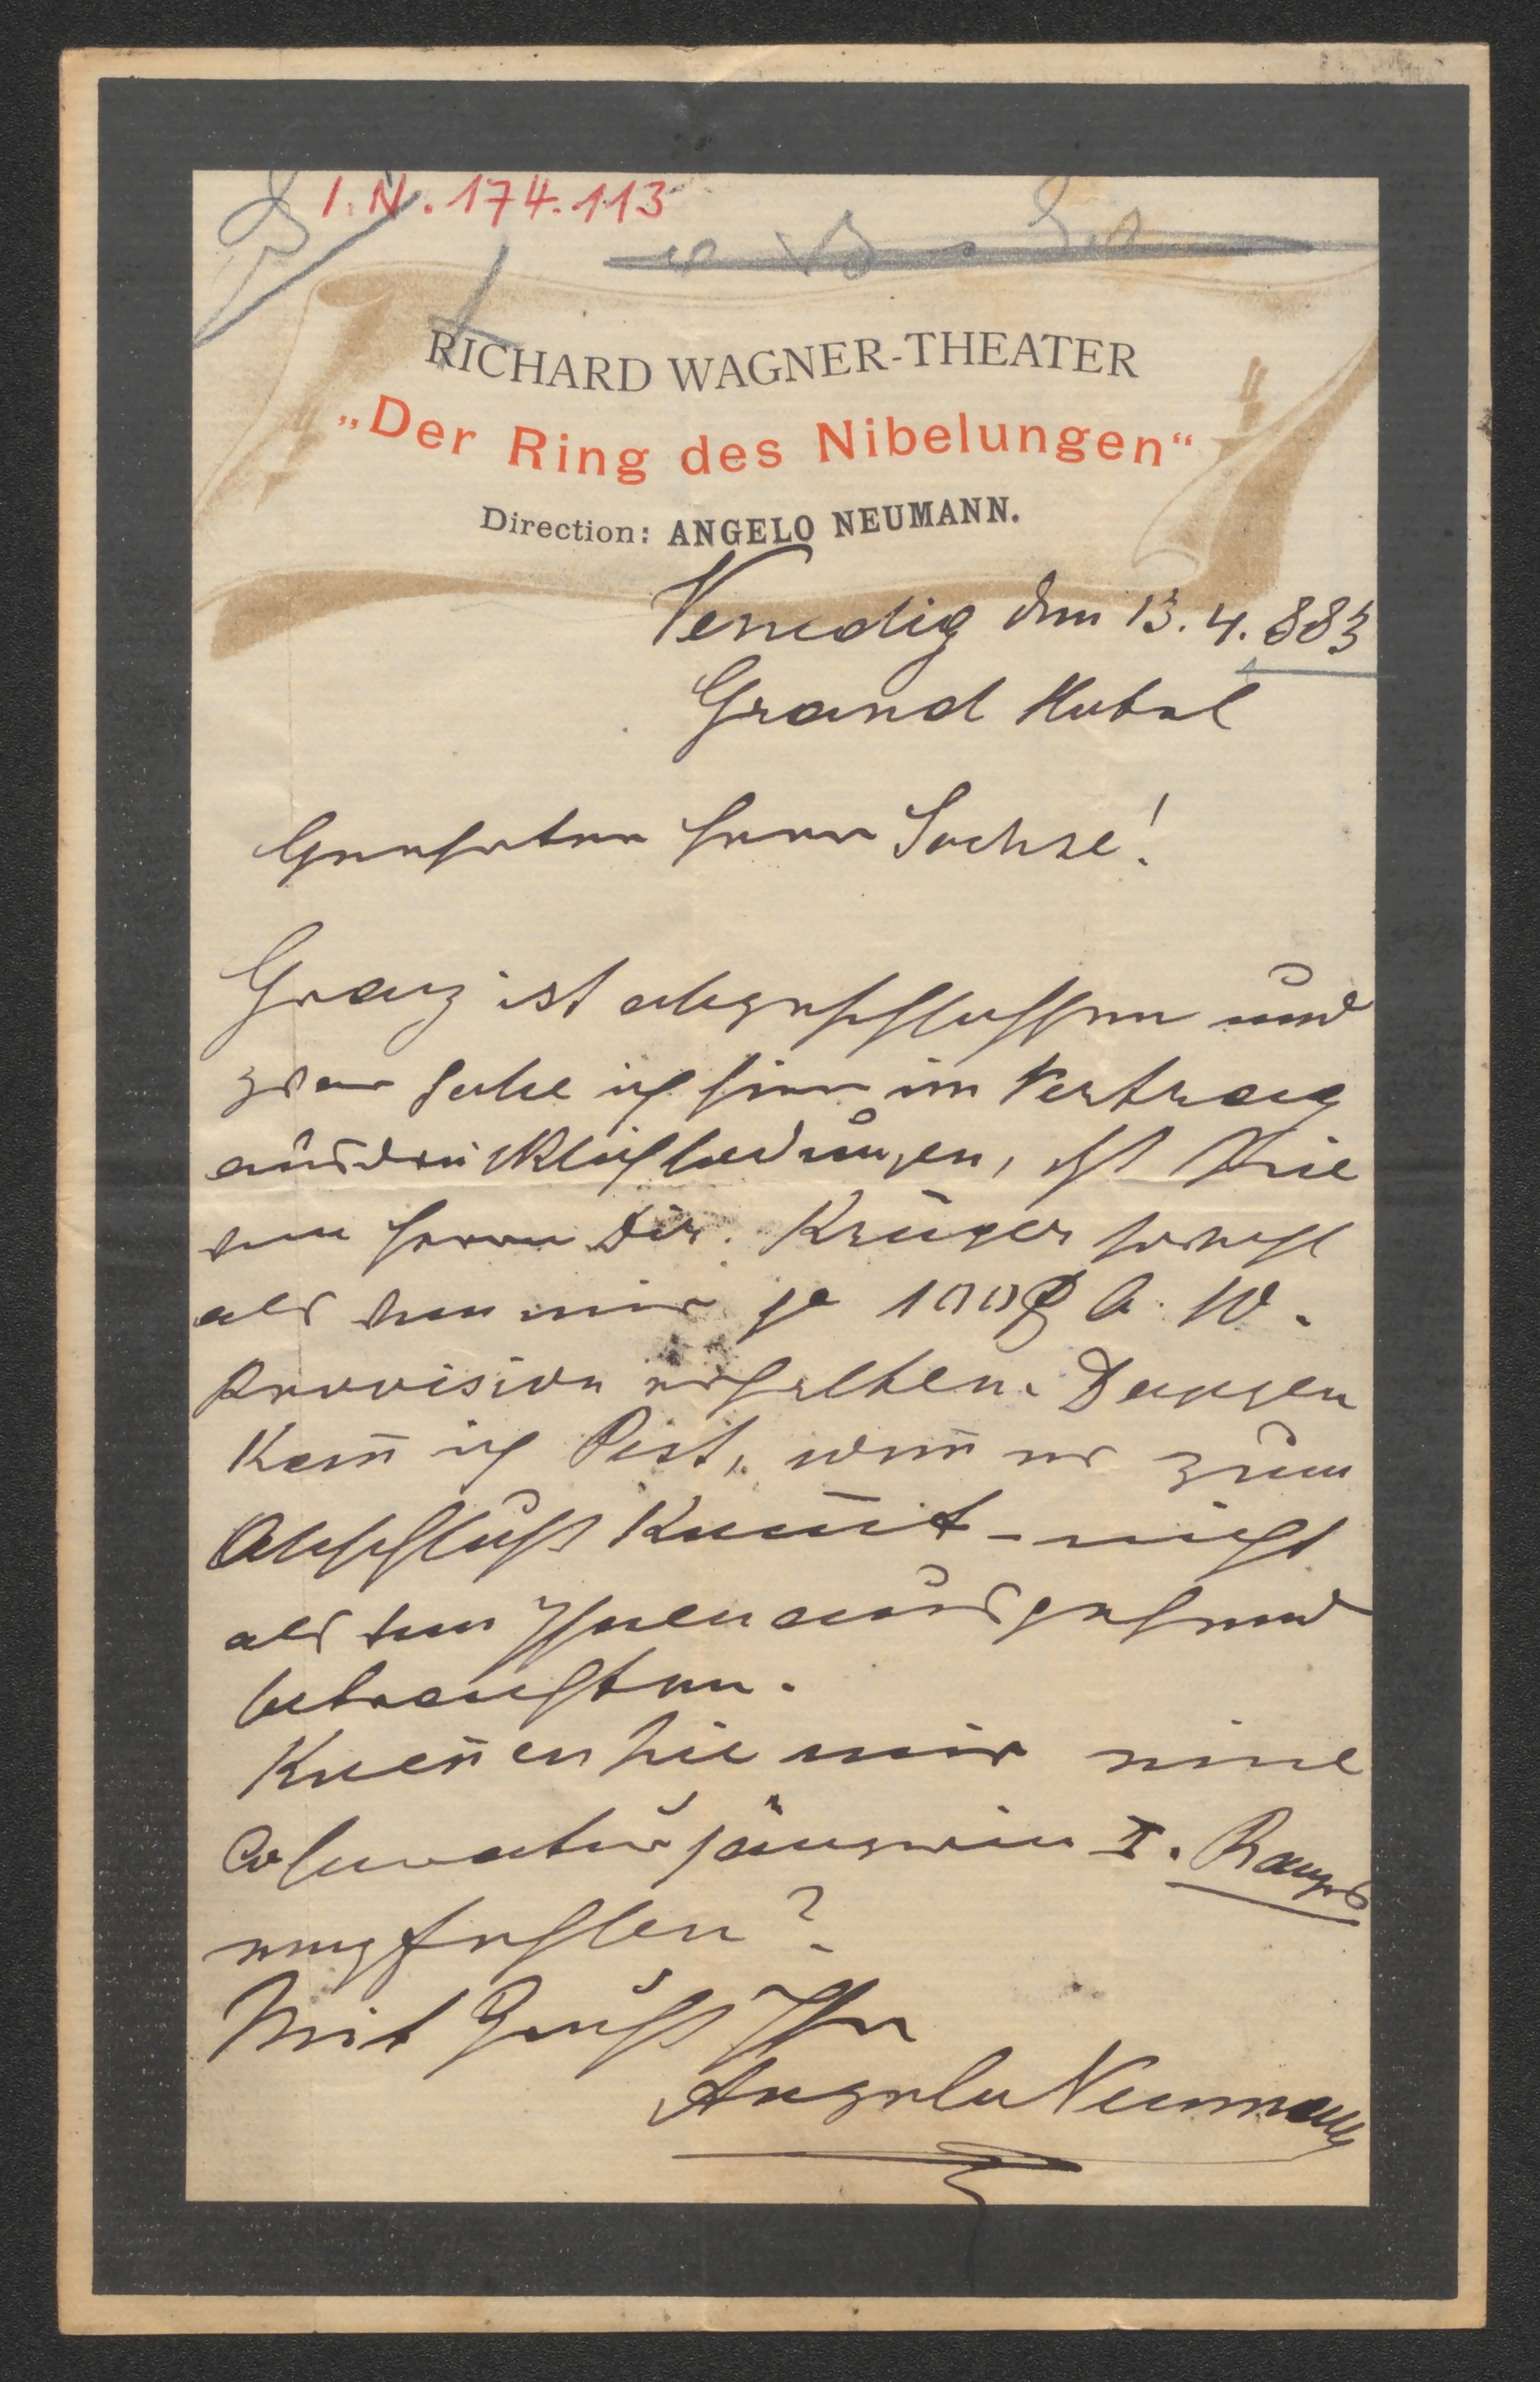 I. N. 174.113
RICHARD WAGNER-THEATER
„Der Ring des Nibelungen“
Direction: ANGELO NEUMANN.
Venedig den 13. 4. 883
Grand Hotel
Geehrter Herr Sachse!
Graz ist abgeschlossen und
zwar habe ich hier im Vertrag
ausdrücklich bedungen, daß Sie
von Herrn Dir. Krüger sowohl
als von mir je 100 ö. W.
Provision erhalten. Dagegen
kan̄ ich Pest, wen̄ es zum
Abschluß kom̄t – nicht
als von Ihnen ausgehend
betrachten.
Koen̄en Sie mir eine
Coloratursängerin I. Ranges
empfehlen?
Mit Gruß Ihr
Angelo Neumann